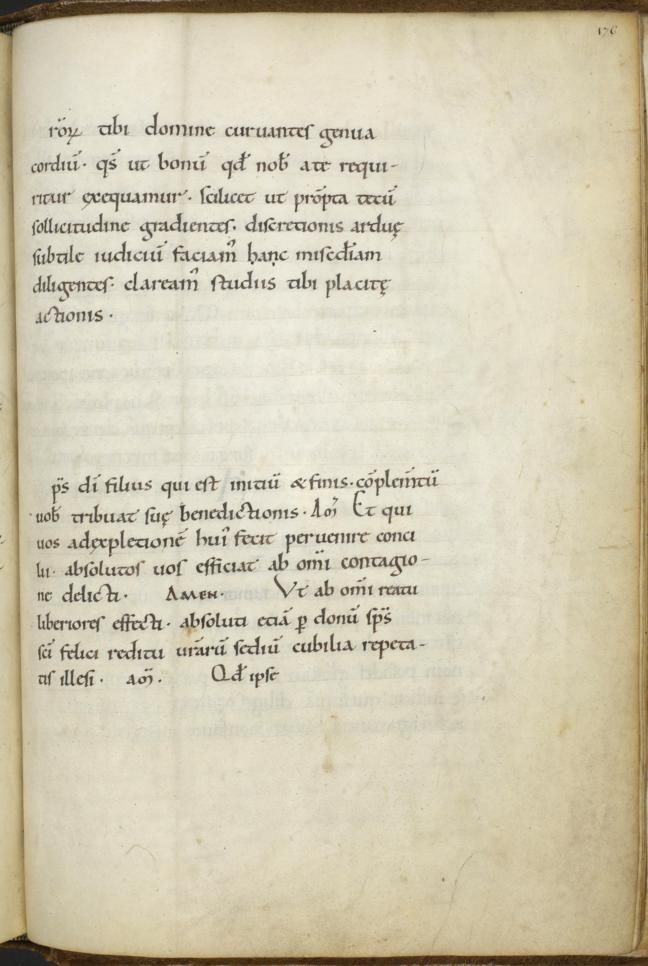 176
rōꝝ tibi domine curuantes genua
cordiū· qs̄ ut bonū qđ nob̄ a te requi-
ritur ęxequamur· scilicet ut prōpta tecū
sollicitudine gradientes· discretionis arduę
subtile iudiciū faciam̄ hanc misc̄diam
diligentes· claream̄ studiis tibi placitę
actionis·
ps̄ dī filius qui est initiū & finis· cōplem̄tū
uob̄ tribuat suę benedictionis· Am̄ Et qui
uos adexpletionē hui' fecit peruenire conci
lii· absolutos uos efficiat ab om̄i contagio-
ne delicti· AMEN· Vt ab om̄i reatu
liberiores effecti· absoluti etiā ꝑ donū sp̄s
sc̄i felici reditu ur̄arū sediū cubilia repeta-
tis illesi· am̄· Qđ ipse